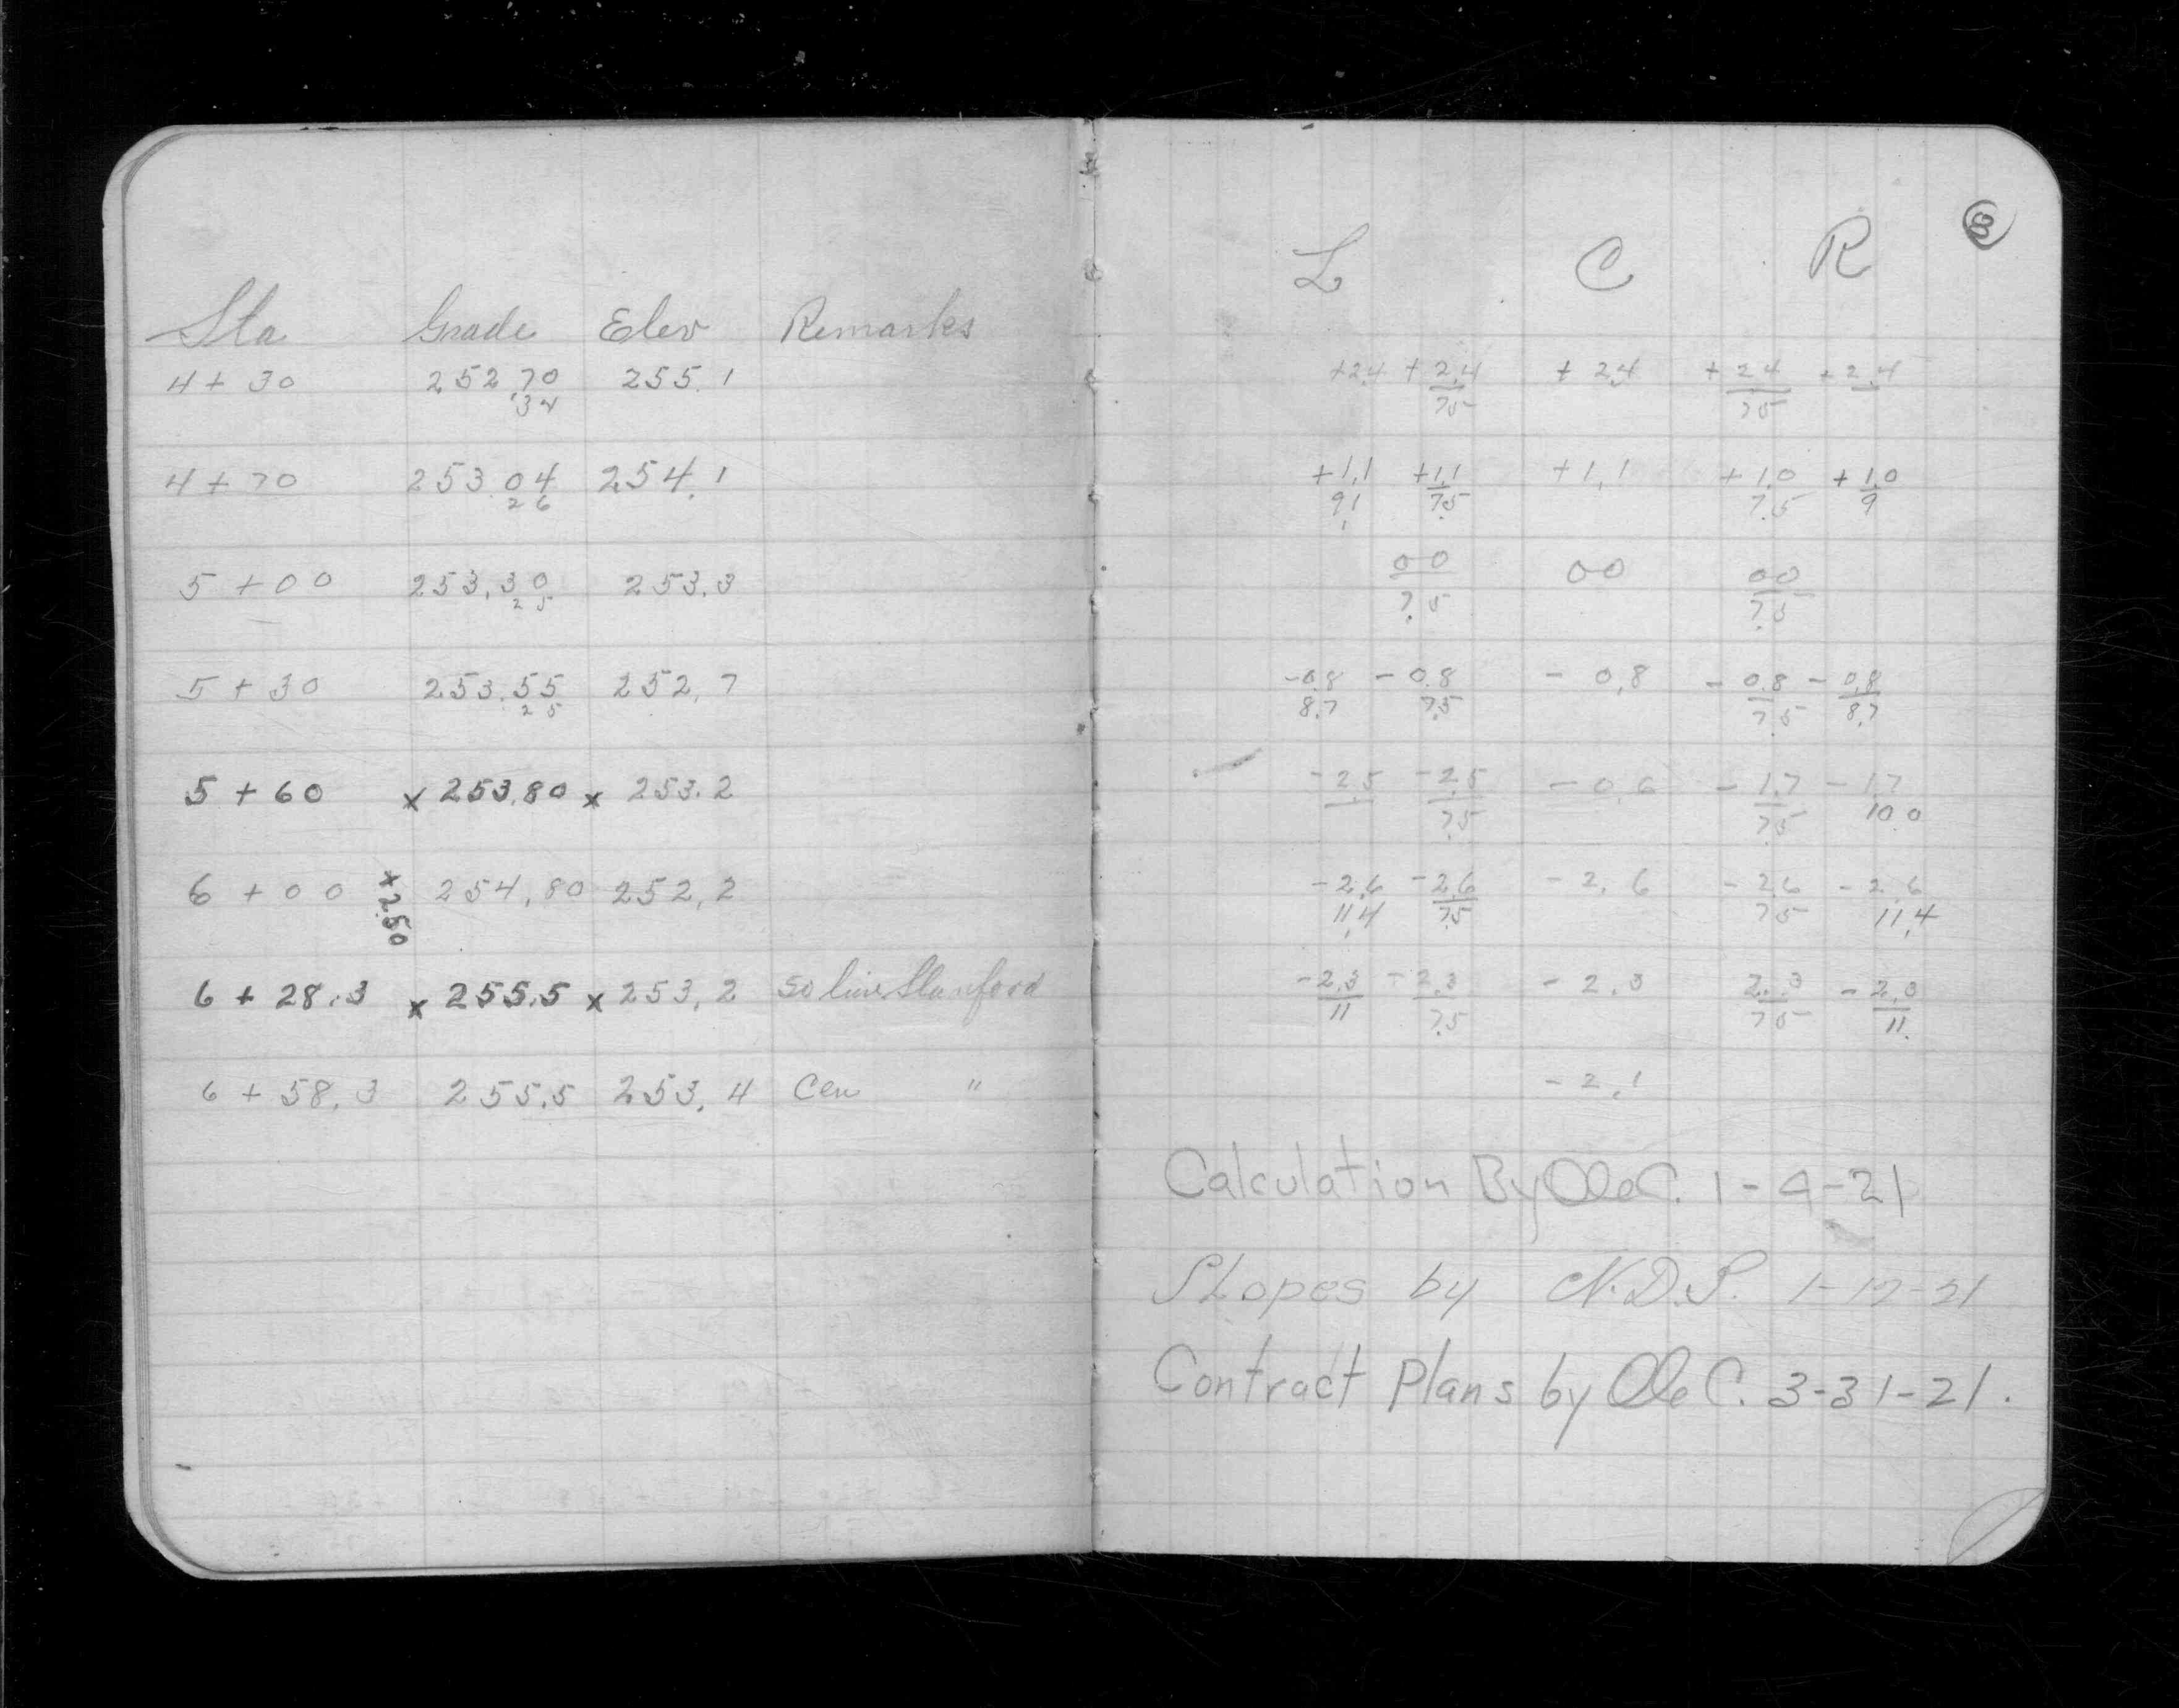 Sta Grade Elev Remarks
4 + 30 252.70 255.1
.34
4 + 70 253.04 254.1
26
5 + 00 253.30 253.3
25
5 + 30 253.55 252.7
25
5 + 60 x 253.80 x 253.2
6 + 00 254.80 252.2
+2.50
6 + 28.3 x 255.5 x 253.2 So line Stanford
6 + 58.3 255.5 253.4 Cen "
8
L C R
+2.4 +2.4 +2.4 +2.4 +2.4
7.5 7.5
+1.1 +1.1 +1.1 +1.0 +1.0
9.1 7.5 7.5 9
00 00 00
7.5 7.5
-0.8 -0.8 -0.8 -0.8 -0.8
8.7 7.5 7.5 8.7
-2.5 -2.5 -0.6 -1.7 -1.7
7.5 7.5 10.0
-2.6 -2.6 -2.6 -2.6 -2.6
11.4 7.5 7.5 11.4
-2.3 -2.3 -2.3 2.3 -2.3
11 7.5 7.5 11
-2.1
Calculation By Ole C. 1-4-21
Slopes by N.D.S. 21
Contract Plans by Ole C. 3-31-21.